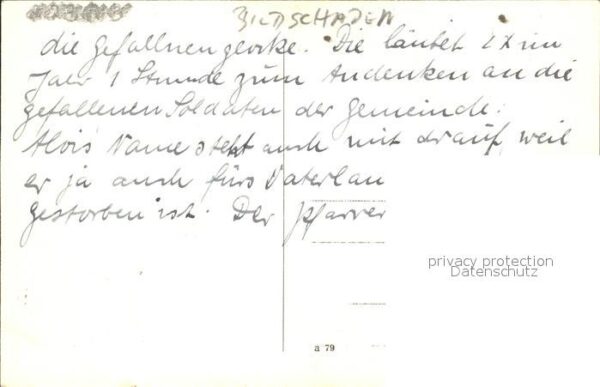 BILDSCHADEN
die Gefallnenglocke. Die läutet 2 x im
Jahr 1 Stunde zum Andenken an die
gefallenen Soldaten der Gemeinde.
Alois Name steht auch mit drauf, weil
er ja auch fürs Vaterlan
gestorben ist. Der Pfarrer
privacy protection
Datenschutz
a 79